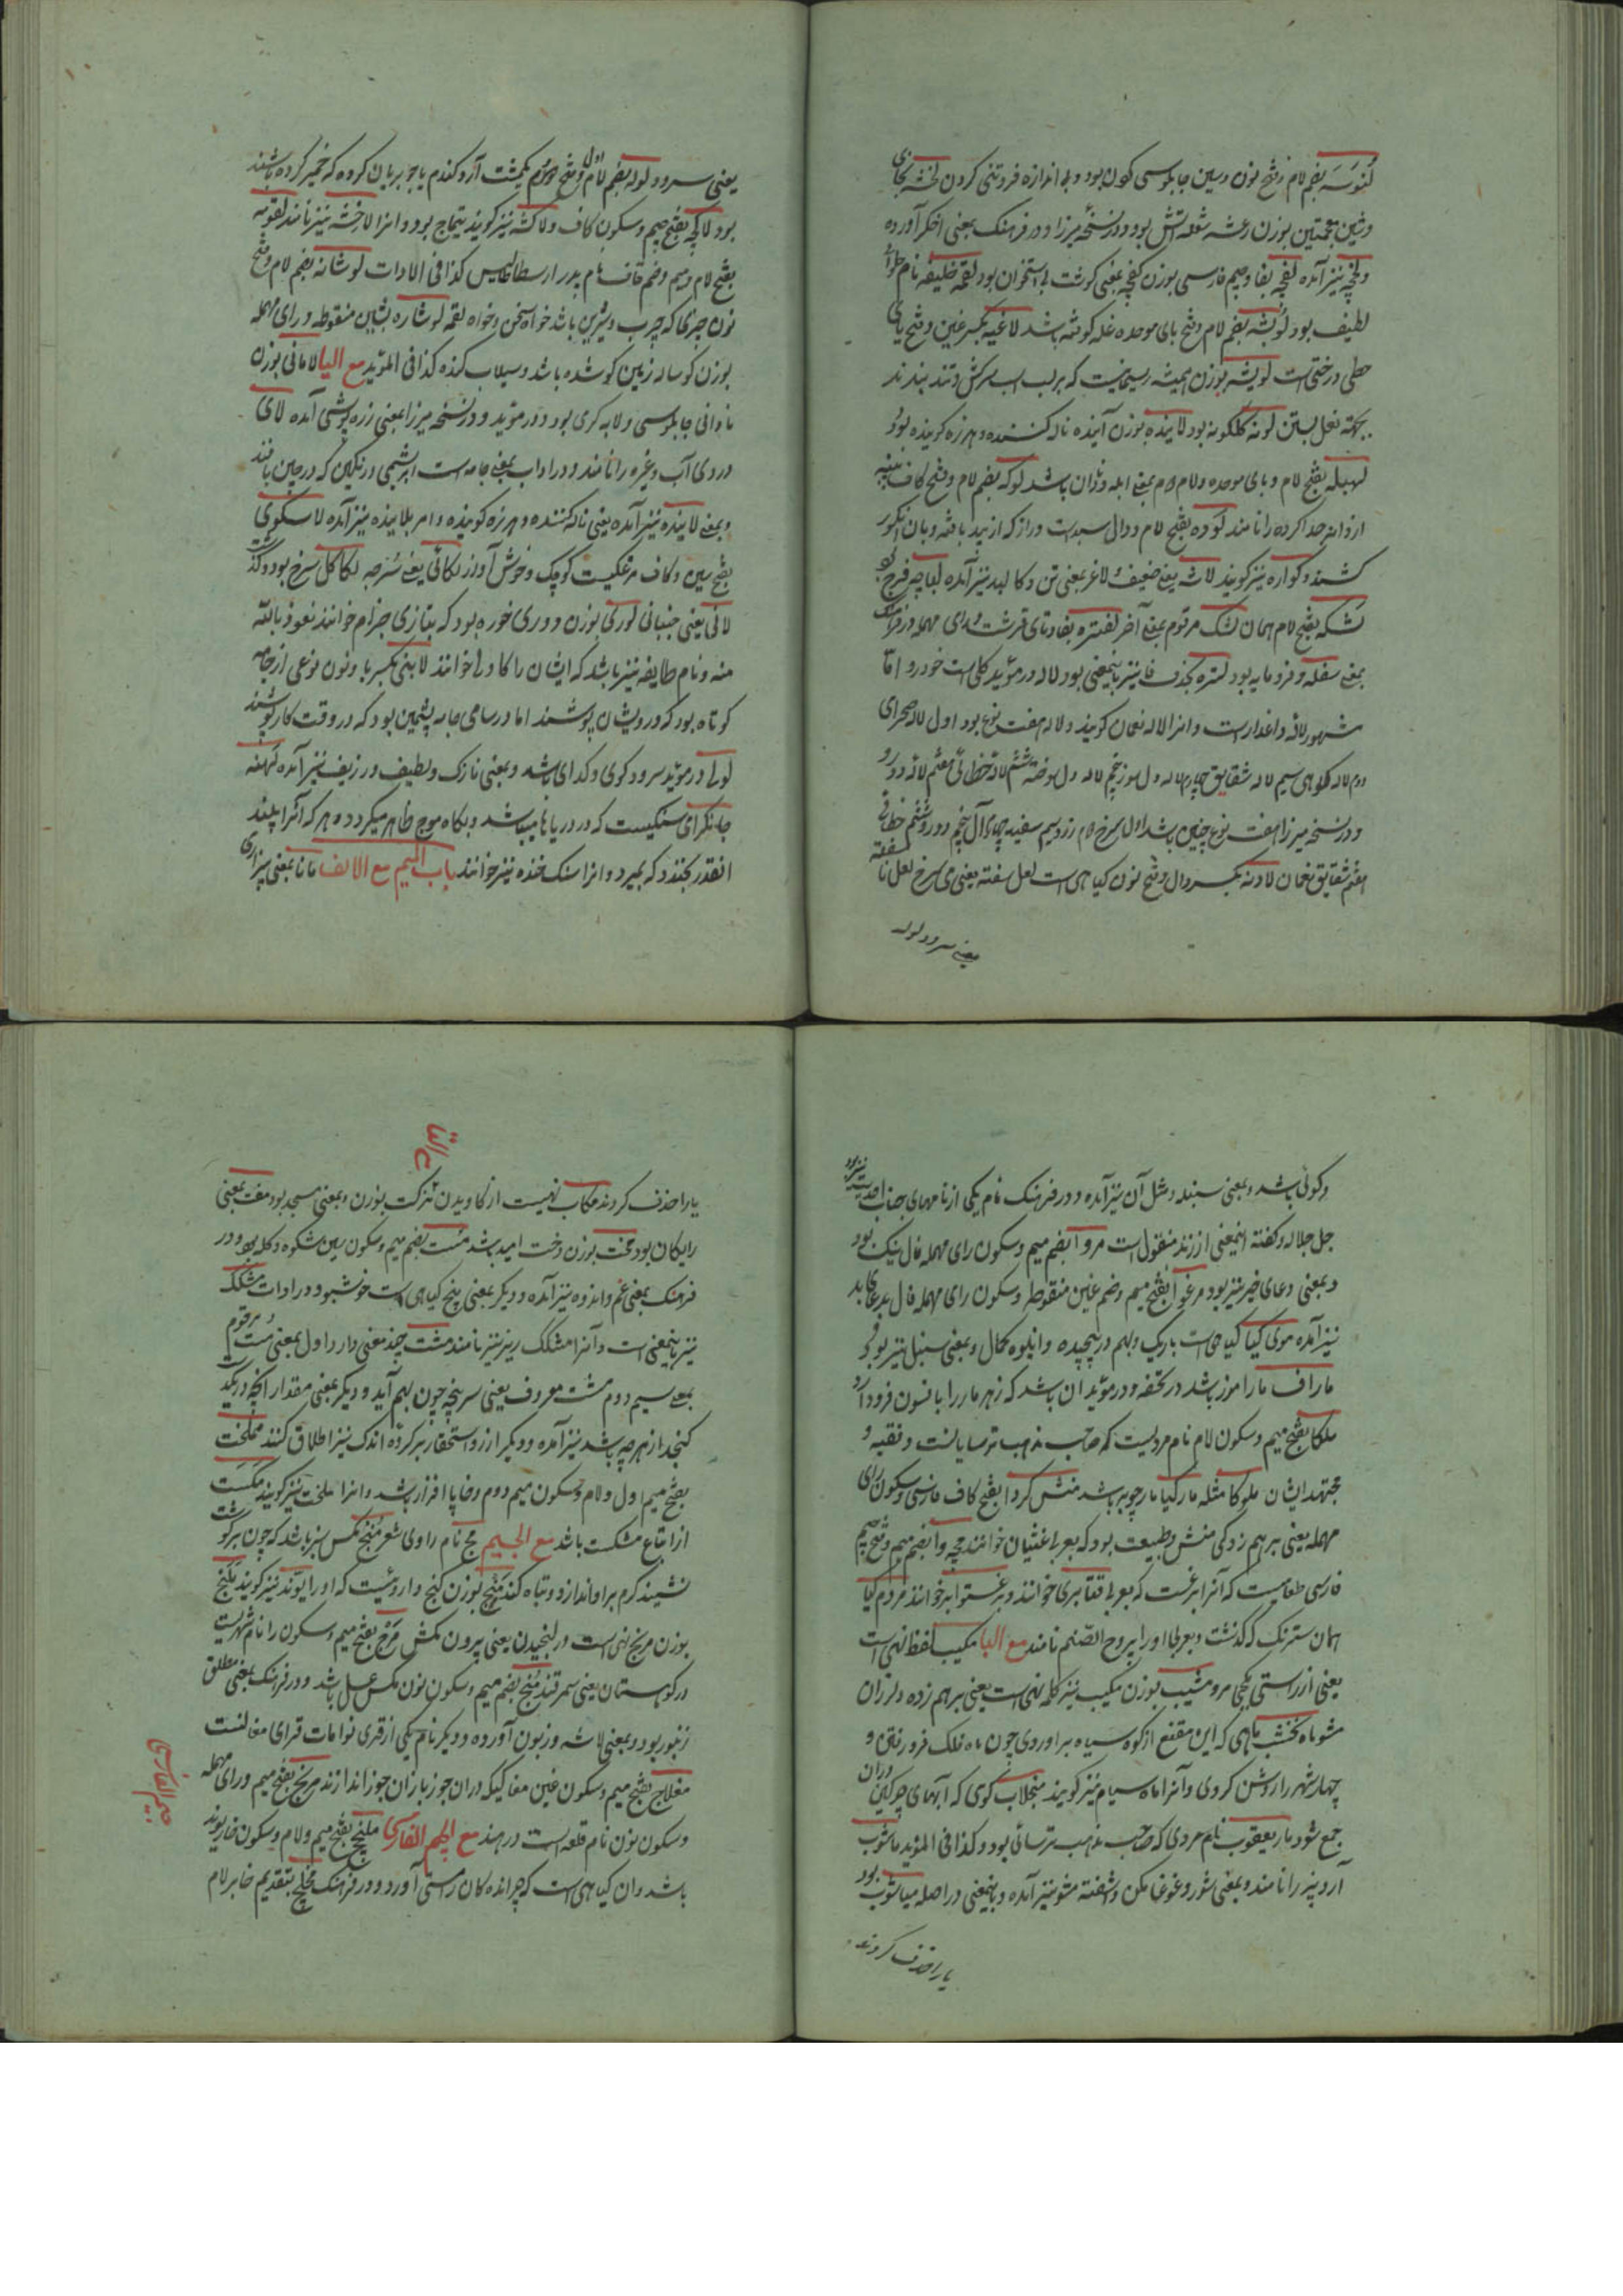 لنوسه بضم لام و فتح نون و سین چاپلوسی کردن بود و بی اندازه فروتنی کردن لخشه بخای
و شین معجمتین بوزن رعشه شعله آتش بود و در نسخه میرزا و در فرهنگ بمعنی اخگر آورده
و لخچه نیز آمده لفچه بفا و جیم فارسی بوزن کفچه بمعنی گوشت بی استخوان بود لقمه خلیفه نام حلوائی
لطیف بود لوبشه بضم لام و فتح بای موحده غله کوفته باشد لاغیه بکسر غین و فتح یای
حطی درختی است لویشه بوزن همیشه ریسمانیست که بر لب اسب سرکش و تند بندند
بجهته نعل بستن لونه گلگونه بود لاینده بوزن آینده ناله کننده و هرزه گوینده بود
لهبله بفتح لام و بای موحده و لام دوم بمعنی ابله و نادان باشد لوکه بضم لام و فتح کاف پنبه
از دانه جدا کرده را نامند لوده بفتح لام و دال سبدیست دراز که از بید بافند و بان انگور
کشند و کواره نیز گویند لاشه یعنی ضعیف و لاغر بمعنی تن و کالبد نیز آمده لباچه فرجی بود
لشکه بفتح لام همان لشک مرقوم بمعنی آخر لفتره بفا و تای قرشت و رای مهمله در فرهنگ
بمعنی سفله و فرومایه بود لتره بحذف فا نیز باینمعنی بود لاله در مؤید گلی است خودرو اما
مشهور لاله داغدار است و انرا لاله نعمان گویند و لاله هفت نوع بود اول لاله صحرای
دوم لاله کوهی سیم لاله شقایق چهارم لاله دل سوز پنجم لاله دل سوخته ششم لاله خطائی هفتم لاله دو رو
و در نسخه میرزا هفت نوع چنین باشد اول سرخ دوم زرد سیم سفید چهارم آل پنجم دورو ششم خطائی
هفتم شقایق نعمان لادنه بکسر دال و فتح نون گیاهی است لعل سفته یعنی می سرخ لعل ناسفته
یعنی سرود لوله
یعنی سرود لوله بضم لام اول و فتح دوم بمیشت آرد گندم یا جو بریان کرده که خمیر کرده باشند
بود لاکچه بفتح جیم و سکون کاف و لاکشه نیز گویند تتماج بود و انرا لاخشه نیز نامند لقومه
بفتح لام و میم و ضم قاف نام پدر ارسطاطالیس کذا فی الادات لوشانه بضم لام و فتح
نون چیزی که چرب و شیرین باشد خواه سخن و خواه لقمه لوشاره بشین منقوطه و رای مهمله
بوزن گوساله زمین گو شده باشد و سیلاب کنده کذا فی المؤید مع الیا لامانی بوزن
نادانی چاپلوسی و لابه گری بود و در مؤید و در نسخه میرزا بمعنی زره پوشی آمده لای
دردی آب و غیره را نامند و در اداب بمعنی جامه است ابریشمی و رنگین که در چین بافند
و بمعنی لاینده نیز آمده یعنی ناله کننده و هرزه گوینده و امر بلاینده نیز آمده لاسکوی
بفتح سین و کاف مرغکیست کوچک و خوش آواز لکائی یعنی سرخچه لکا گل سرخ بود و گذشت
لانی یعنی جنبانی لوری بوزن دوری خوره بود که بتازی جزام خوانند نعوذ بالله
منه و نام طایفه نیز باشد که ایشان را کاولی خوانند لابنی بکسر با و نون نوعی از جامه
کوتاه بود که درویشان پوشند اما در سامی جامه پشمین بود که در وقت کار پوشند
لولی در مؤید سرود گوی و گدای باشد و بمعنی نازک و لطیف و زریف نیز آمده لهفه
جانگزای سنگیست که در دریاها میباشد و بگاه موج ظاهر میگردد هر که آنرا بیند
انقدر بخندد که بمیرد و انرا سنگ خنده نیز خوانند باب المیم مع الالف مانا بمعنی پنداری
و گوئی باشد و بمعنی سنبله و مثل آن نیز آمده و در فرهنگ نام یکی از نامهای جناب احدیت نیز بود
جل جلاله و گفته اینمعنی از زند منقول است مروا بضم میم و سکون رای مهمله فال نیک بود
و بمعنی دعای خیر نیز بود مرغوا بفتح میم و ضم غین منقوطه و سکون رای مهمله فال بد دعای بد
نیز آمده موی گیا گیاهی است باریک و بهم در پیچیده و انبوه کمال و بمعنی سنبل نیز بود
ماراف مارا موز باشد در تحفه و در مؤید ان باشد که زهر مار را بافسون فرود آرد
ملکا بفتح میم و سکون لام نام مردیست که صاحب مذهب ترسایانست و فقیه و
مجتهد ایشان ملوکا مثله مارگیا مارچوبه باشد منش گردا بفتح کاف فارسی و سکون رای
مهمله یعنی برهم زدگی منش و طبیعت بود که بعربی غثیان خوانند مچه وا بضم میم و فتح جیم
فارسی طعامیست که آنرا برغست که بعربی قثابری خوانند و برغستوا نیز خوانند مردم گیا
همان سترنگ که گذشت و بعربی اورا یبروح الصنم نامند مع البا مکیب لفظ نهی است
یعنی از راستی بکجی مرو مشیب بوزن مکیب نیز کلمه نهی است یعنی برهم زده و لرزان
مشو ماه نخشب ماهی که ابن مقنع از کوه سیاه براوردی چون ماه فلک فرو رفتی و
چهار شهر را روشن کردی و آنرا ماه سیام نیز گویند منجلاب گوی که آبهای چرکین دران
جمع شود مار یعقوب نام مردی که صاحب مذهب ترسائی بود و کذا فی المؤید ماشوب
آرد بیز را نامند و بمعنی شور و غوغا مکن و اشفته مشو نیز آمده و باینمعنی در اصل میاشوب بود
یا را حذف کردند
مع التا
یا را حذف کردند مکاب نهیست از کاویدن مزکت بوزن و بمعنی مسجد بود مفت بمعنی
رایگان بود مخت بوزن رخت امید باشد مست بضم میم و سکون سین شکوه و گله بود و در
فرهنگ بمعنی غم و اندوه نیز آمده و دیگر بمعنی بیخ گیاهی است خوشبو و در ادات مشکک
نیز باینمعنی است و آنرا مشکک ریز نیز نامند مشت چند معنی دارد اول بمعنی مست مرقوم
بمعنی سیم دوم مشت معروف یعنی سر پنجه چون بهم آید و دیگر بمعنی مقدار انچه در یک مشت
گنجد از هرچه باشد نیز آمده و دیگر از رو استحقار بر گروه اندک نیز اطلاق کنند مملخت
بفتح میم اول و لام و سکون میم دوم و خا پا افزار باشد و انرا ملخت نیز گویند مکست
از اتباع شکست باشد مع الجیم مج نام راوی شعر منج مگس سبز باشد که چون بر گوشت
نشیند کرم بر او اندازد و تباه کند منج بوزن گنج داروئیست که او را بوند نیز گویند ملنج
بوزن مرنج نهی است و از لنجیدن یعنی بیرون مکش مرغ بفتح میم و سکون را نام شهریست
در کوهستان یعنی سمرقند منج بضم میم و سکون نون مگس عسل باشد و در فرهنگ بمعنی مطلق
زنبور بود و بمعنی لاشه و زبون آورده و دیگر نام یکی از قری نوامات قرای مغانست
مغلاج بفتح میم و سکون غین مغاکیکه دران جوز بازان جوز اندازند مرنج بفتح میم و رای مهمله
و سکون نون نام قلعه است در هند مع الجیم الفارسی ملخچ بفتح میم و لام و سکون خا ریوند
باشد و ان گیاهی است که چرانده کان را مستی آورد و در فرهنگ مخلچ بتقدیم خا بر لام
جیم الفارسی